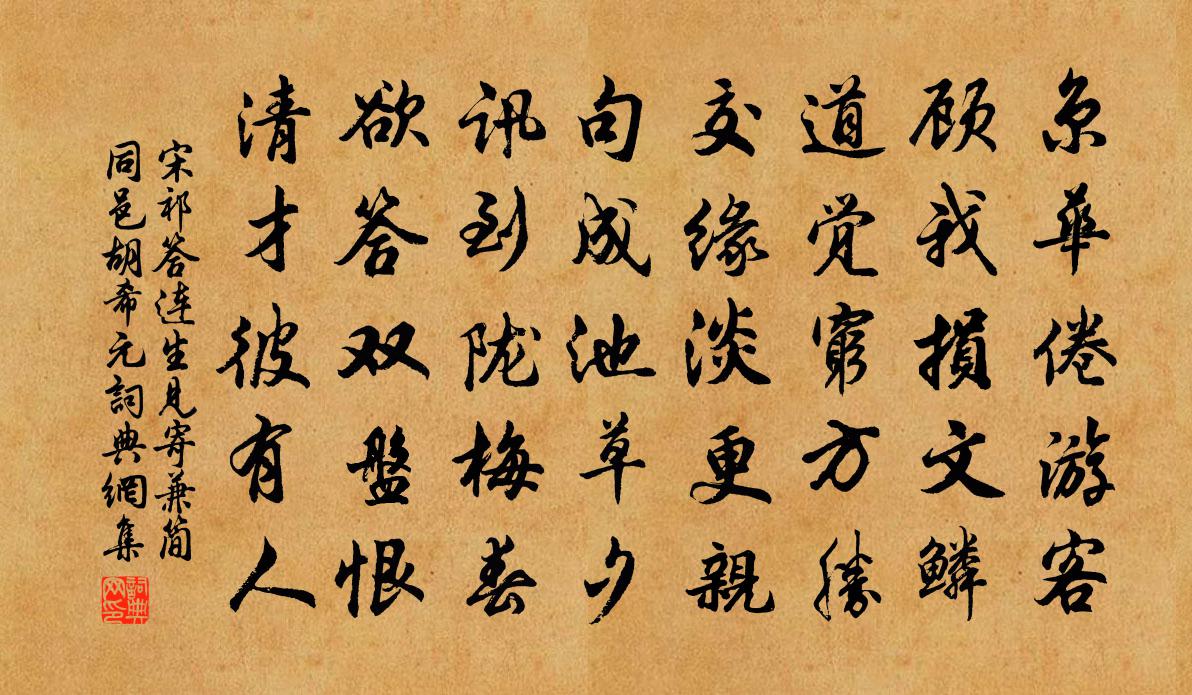 京華倦游客
顾我損文鱗
道觉窮方勝
交缘淡更親
句成池草夕
訊到陇梅春
欲答双盤恨
清才彼有人
宋祁答连生見寄兼简
同邑胡希元詞典網集
詞典网印